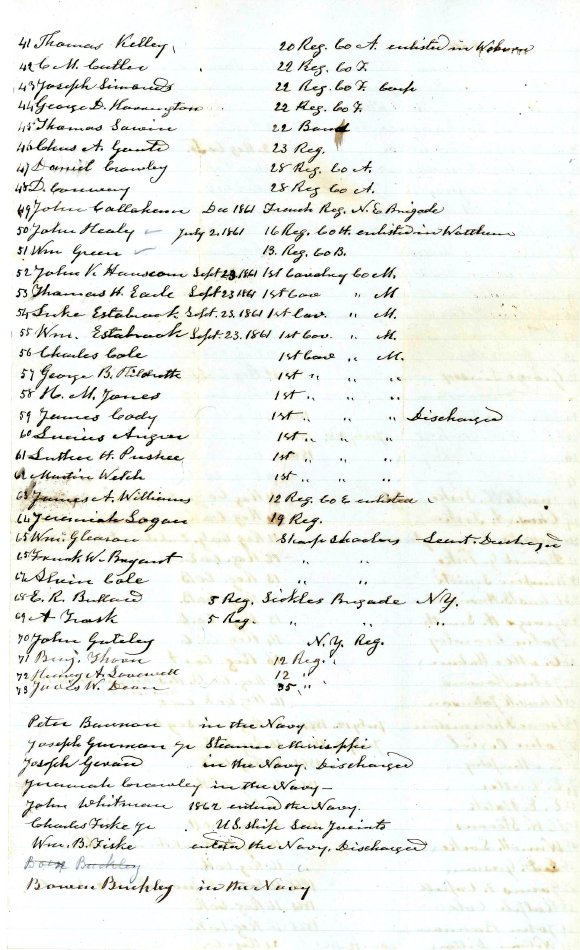 41 Thomas Kelley, 20 Reg. Co A. enlisted in Woburn
42 C. M. Cutler 22 Reg. Co F.
43 Joseph Simonds 22 Reg. Co F Corp
44 George D. Harrington 22 Reg. Co F.
45 Thomas Sawin 22 Band
46 Chas A. 23 Reg.
47 Daniel Crowley 28 Reg. Co A.
48 D. Conway 28 Reg. Co A.
49 John Callahan Dec 1861 French Reg. N. E Brigade
50 John Healy July 2. 1861 16 Reg. Co H. enlisted in Waltham
51 Wm Green 13. Reg. Co B.
52 John V. Sept 23 1861 1st Cavalry Co M.
53 Thomas H. Earle Sept 23 1861 1st Cav " M
54 Luke Estabrook Sept. 23. 1861 1st Cav. " M.
55 Wm. Estabrook Sept. 23. 1861 1st Cav. " M.
56 Charles Cole 1st Cav " M.
57 George B. Hildreth 1st " " "
58 H. M. Jones 1st " " "
59 James Cody 1st " " " Discharged
60 Lucius 1st " " "
61 Luther H. 1st " " "
62 Martin Welch 1st " " "
63 James A. Williams 12 Reg. Co E enlisted
64 Jeremiah Logan 19 Reg.
65 Wm. Gleason Sharp Shooters Lieut. Discharged
65 Frank W. Bryant " "
Cole " "
68 E. R. Bullard 5 Reg. Sickles Brigade N.Y.
69 A Trask 5 Reg. " " "
70 John Gateley N. Y. Reg.
71 Benj. 12 Reg. "
72 Henry A. 12 "
73 W. Dean 35 "
Peter in the Navy
Joseph Jr Steamer
Joseph in the Navy. Discharged
Jeremiah Crowley in the Navy—
John Whitman 1862 entered the Navy.
Charles Fiske Jr U.S. ship San Jacinto
Wm. B. Fiske entered the Navy, Discharged
Buckley
Bowen Buckley in the Navy